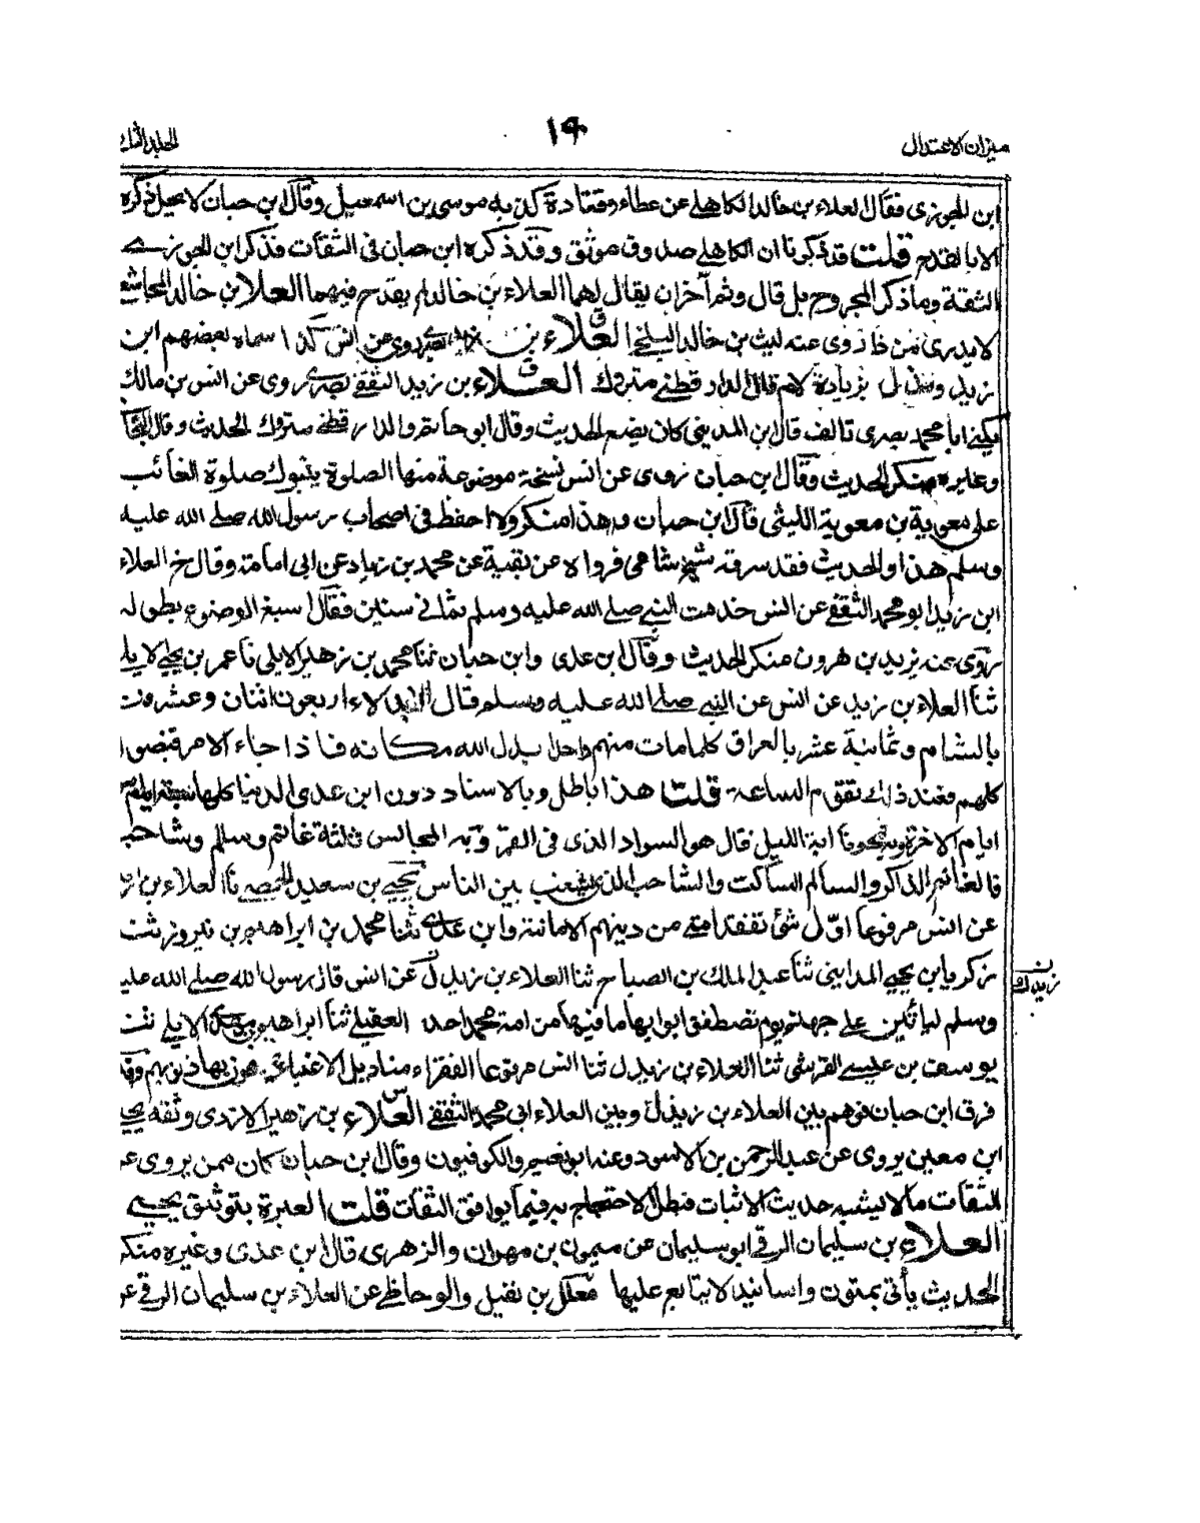 ميزان الاعتدال
١٩
ابن الجوزى فقال العلاء بن خالد الكاهلے عن عطاء وقتادة كذبه موسى بن اسمعيل وقال ابن حبان لا يحل ذكره
الا بالقدح قلت قد ذكرنا ان الكاهلے صدوق موثق وقد ذكره ابن حبان فى الثقات فذكر ابن الجوزے
الثقة وما ذكر المجروح بل قال وثم آخران يقال لهما العلاء بن خالد لم يقدح فيهما العلا بن خالد المجاشع
لا يدرى من ذا روى عنه ليث بن خالد البلخے العلاء بن بصرے روى عن انس كذا اسماه بعضهم ابن
زيد بزيادة لام قال الدارقطنے متروك العلاء بن زيدل الثقفے بصرے روى عن انس بن مالك
يكنے ابا محمد بصرى تالف قال ابن المدينى كان يضع الحديث وقال ابو حاتم والدارقطنے متروك الحديث وقال
وغيره منكر الحديث وقال ابن حبان روى عن انس نسخة موضوعة منها الصلوة بتبوك صلوة الغائب
على معوية بن معوية الليثى قال ابن حبان وهذا منكر ولا احفظ فى اصحاب رسول الله صلے الله عليه
وسلم هذا والحديث فقد سرقه شيخ شامى فرواه عن بقية عن محمد بن زياد عن ابى امامة وقال خ العلاء
ابن زيد ابو محمد الثقفے عن انس خدمت النبے صلے الله عليه وسلم ثمانے سنين فقال اسبغ الوضوء بطوله
روى عنه يزيد بن هرون منكر الحديث وقال ابن عدى وابن حبان ثنا محمد بن زهير الايلى نا عمر بن يحيے الايلے
ثنا العلاء بن زيدل عن انس عن النبے صلے الله عليه وسلم قال الابدلاء اربعون اثنان وعشرون
بالشام وثمانية عشر بالعراق كلما مات منهم واحد ابدل الله مكانه فاذا جاء الامر قبضوا
كلهم فعند ذلك تقوم الساعة قلت هذا باطل وبالاسناد دون ابن عدى الدنيا كلها سبعة ايام من
ايام الاخرة وبه فمحونا اية الليل قال هو السواد الذى فى القمر وبه المجالس ثلثة غانم وسالم وشاحب
فالغانم الذاكر والسالم الساكت والشاحب الذى يشغب بين الناس يحيے بن سعيد الحمصے نا العلاء بن
عن انس مرفوعا اول شئ تفقد امتے من دينهم الامانة وابن عدے ثنا محمد بن ابراهيم بن نيروز ثنا
زكريا بن يحيے المداينى ثنا عبد الملك بن الصباح ثنا العلاء بن زيدل عن انس قال رسول الله صلے الله عليه
وسلم لياتين على جهنم يوم تصطفق ابوابها ما فيها من امة محمد احد العقيلے ثنا ابراهيم بن محمد الايلے ثنا
يوسف بن عيسے القرشى ثنا العلاء بن زيدل ثنا انس مرفوعا الفقراء مناديل الاغنياء
فرق ابن حبان فوهم بين العلاء بن زيدل وبين العلاء ابى محمد الثقفے العلاء بن زهير الازدى وثقه يحيے
ابن معين يروى عن عبد الرحمن بن الاسود وعنه ابو نعيم والكوفيون وقال ابن حبان كان ممن يروى عن
الثقات ما لا يشبه حديث الاثبات فبطل الاحتجاج به فيما يوافق الثقات قلت العبرة بتوثيق يحيے
العلاء بن سليمان الرقے ابو سليمان عن ميمون بن مهران والزهرى قال ابن عدى وغيره منكر
الحديث يأتى بمتون واسانيد لا يتابع عليها معلل بن نفيل والوحاظے عن العلاء بن سليمان الرقے عن